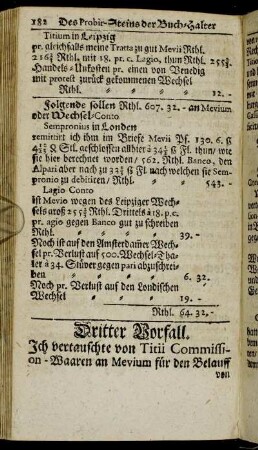 182 Des Probir-Steins der Buch-Halter
Titium in Leipzig
pr. gleichfalls meine Tratta zu gut Mevii Rthl.
216¾ Rthl. mit 18. pr. c. Lagio, thun Rthl. 255¾.
Handels-Unkosten pr. einen von Venedig
mit protest zurück gekommenen Wechsel
Rthl. 12. -
Folgende sollen Rthl. 607. 32. - an Mevium
oder Wechsel-Conto
Sempronius in Londen
remittirt ich ihm im Briefe Mevii Pf. 130. 6. ß
4¾ & Stl. geschlossen allhier à 34½ ß Fl. thun, wie
sie hier berechnet worden, 562. Rthl. Banco, den
Alpari aber nach zu 33¾ ß Fl nach welchen sie Sem-
pronio zu debitiren, Rthl. 543. -
Lagio Conto
ist Mevio wegen des Leipziger Wech-
sels groß 255¾ Rthl. Drittels à 18. p. c.
pr. agio gegen Banco gut zu schreiben
Rthl. 39. -
Noch ist auf den Amsterdamer Wech-
sel pr. Verlust auf 500. Wechsel-Tha-
ler à 34. Stüver gegen pari abzuschrei-
ben 6. 32.
Noch pr. Verlust auf den Londischen
Wechsel 19. -
Rthl. 64. 32. -
Dritter Vorfall.
Ich vertauschte von Titii Commissi-
on-Waaren an Mevium für den Belauff
von